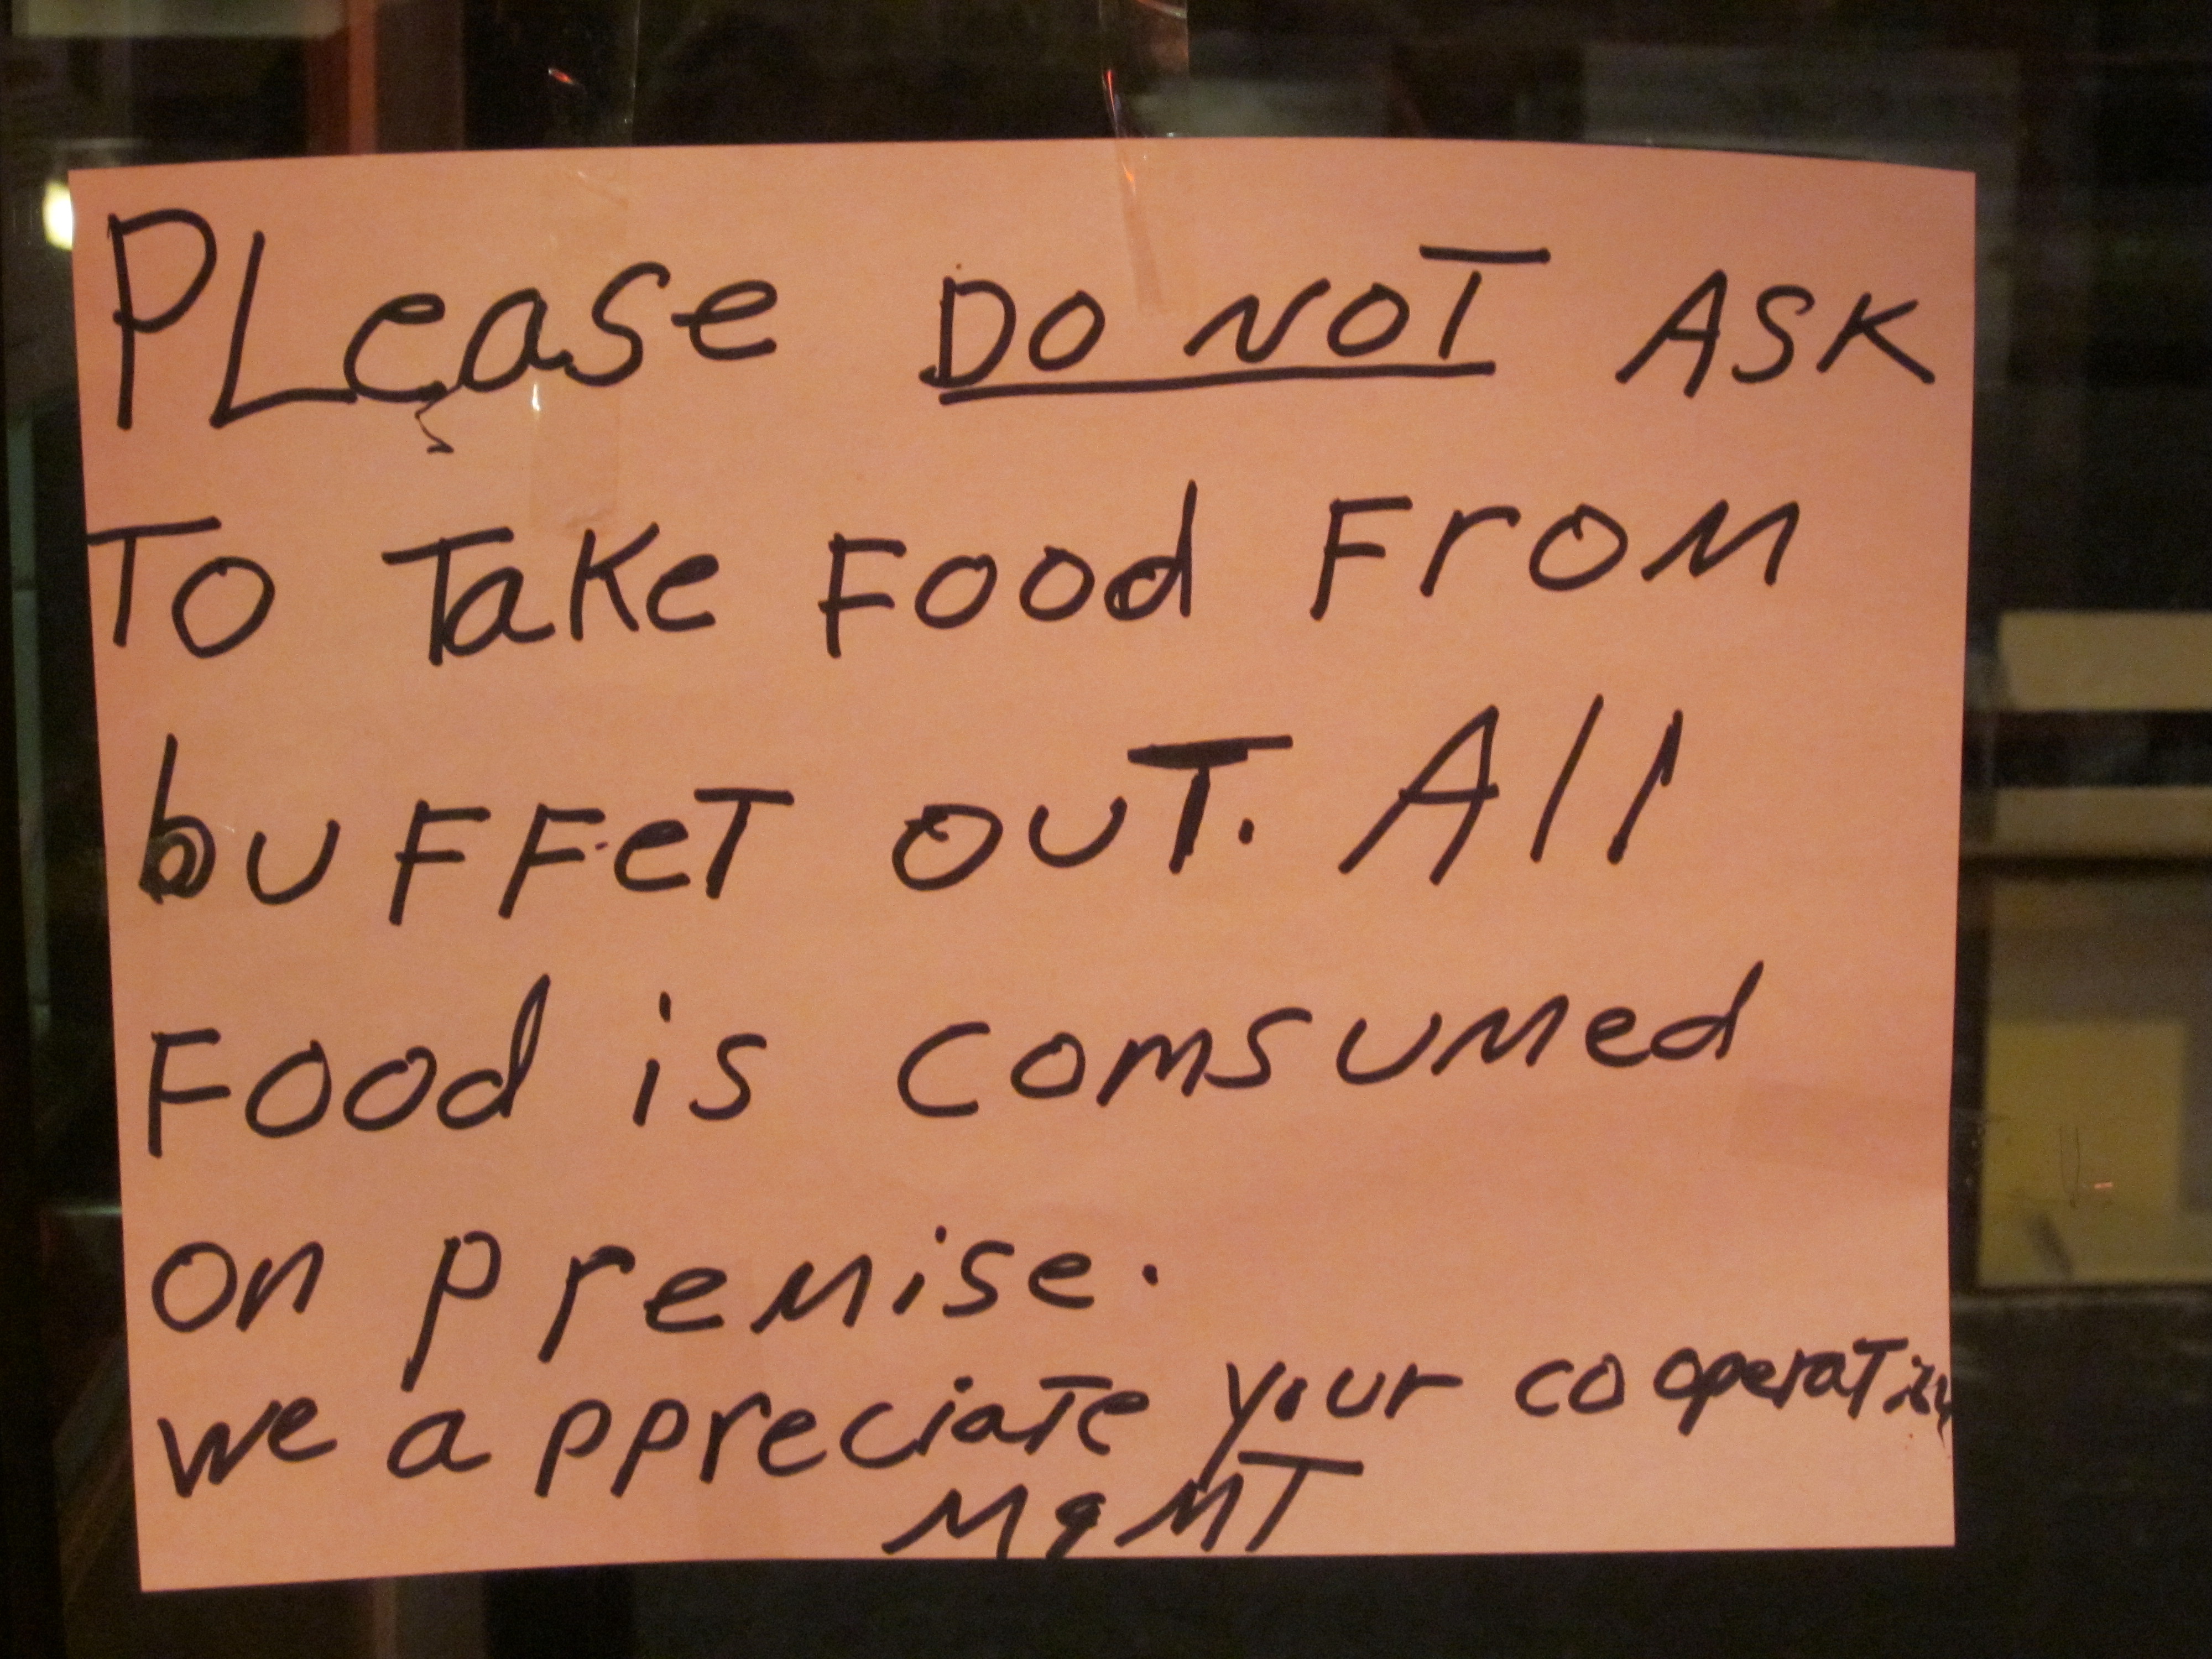 PLease DO NOT ASK
To Take Food From
buFFeT ouT. All
Food is comsumed
on premise.
we appreciate your cooperation
MgMT